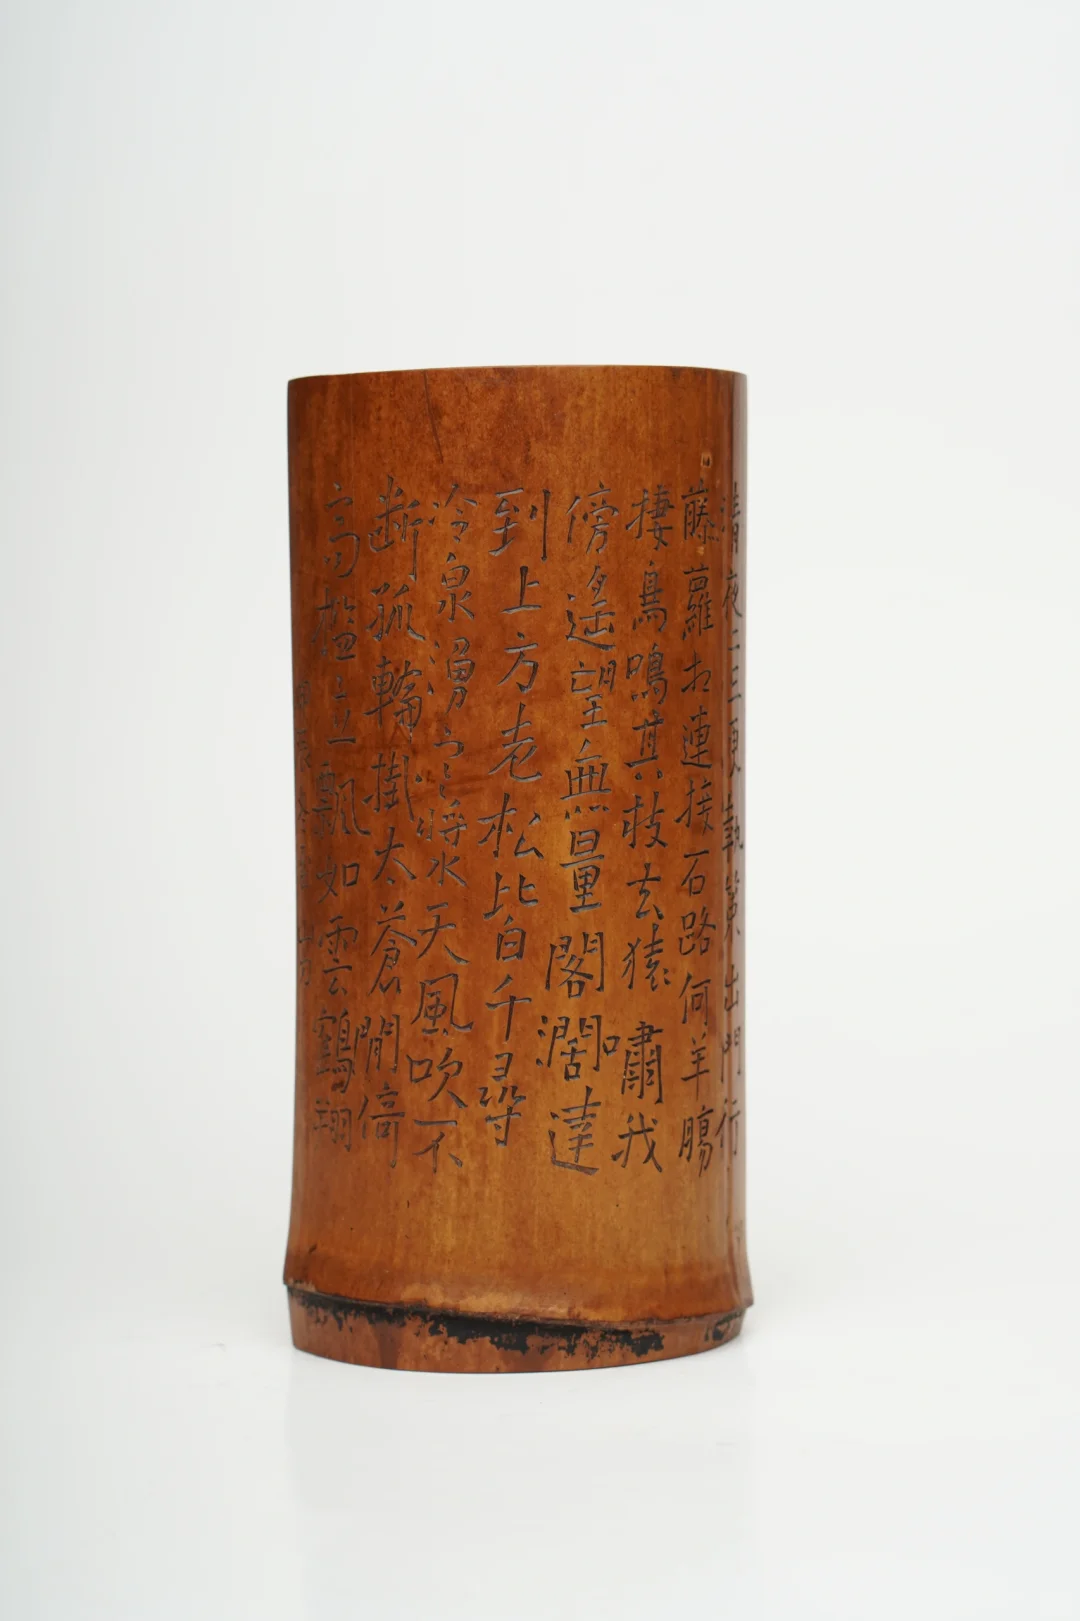 清夜二三更執策出門行
藤蘿相連接石路何羊腸
棲鳥鳴其枝玄猿嘯我
傍遙望無量閣濶達
到上方老松比白千尋
冷泉湧寒漿天風吹不
斷孤輪掛太蒼間倚
高檻立飄如雲鶴翔